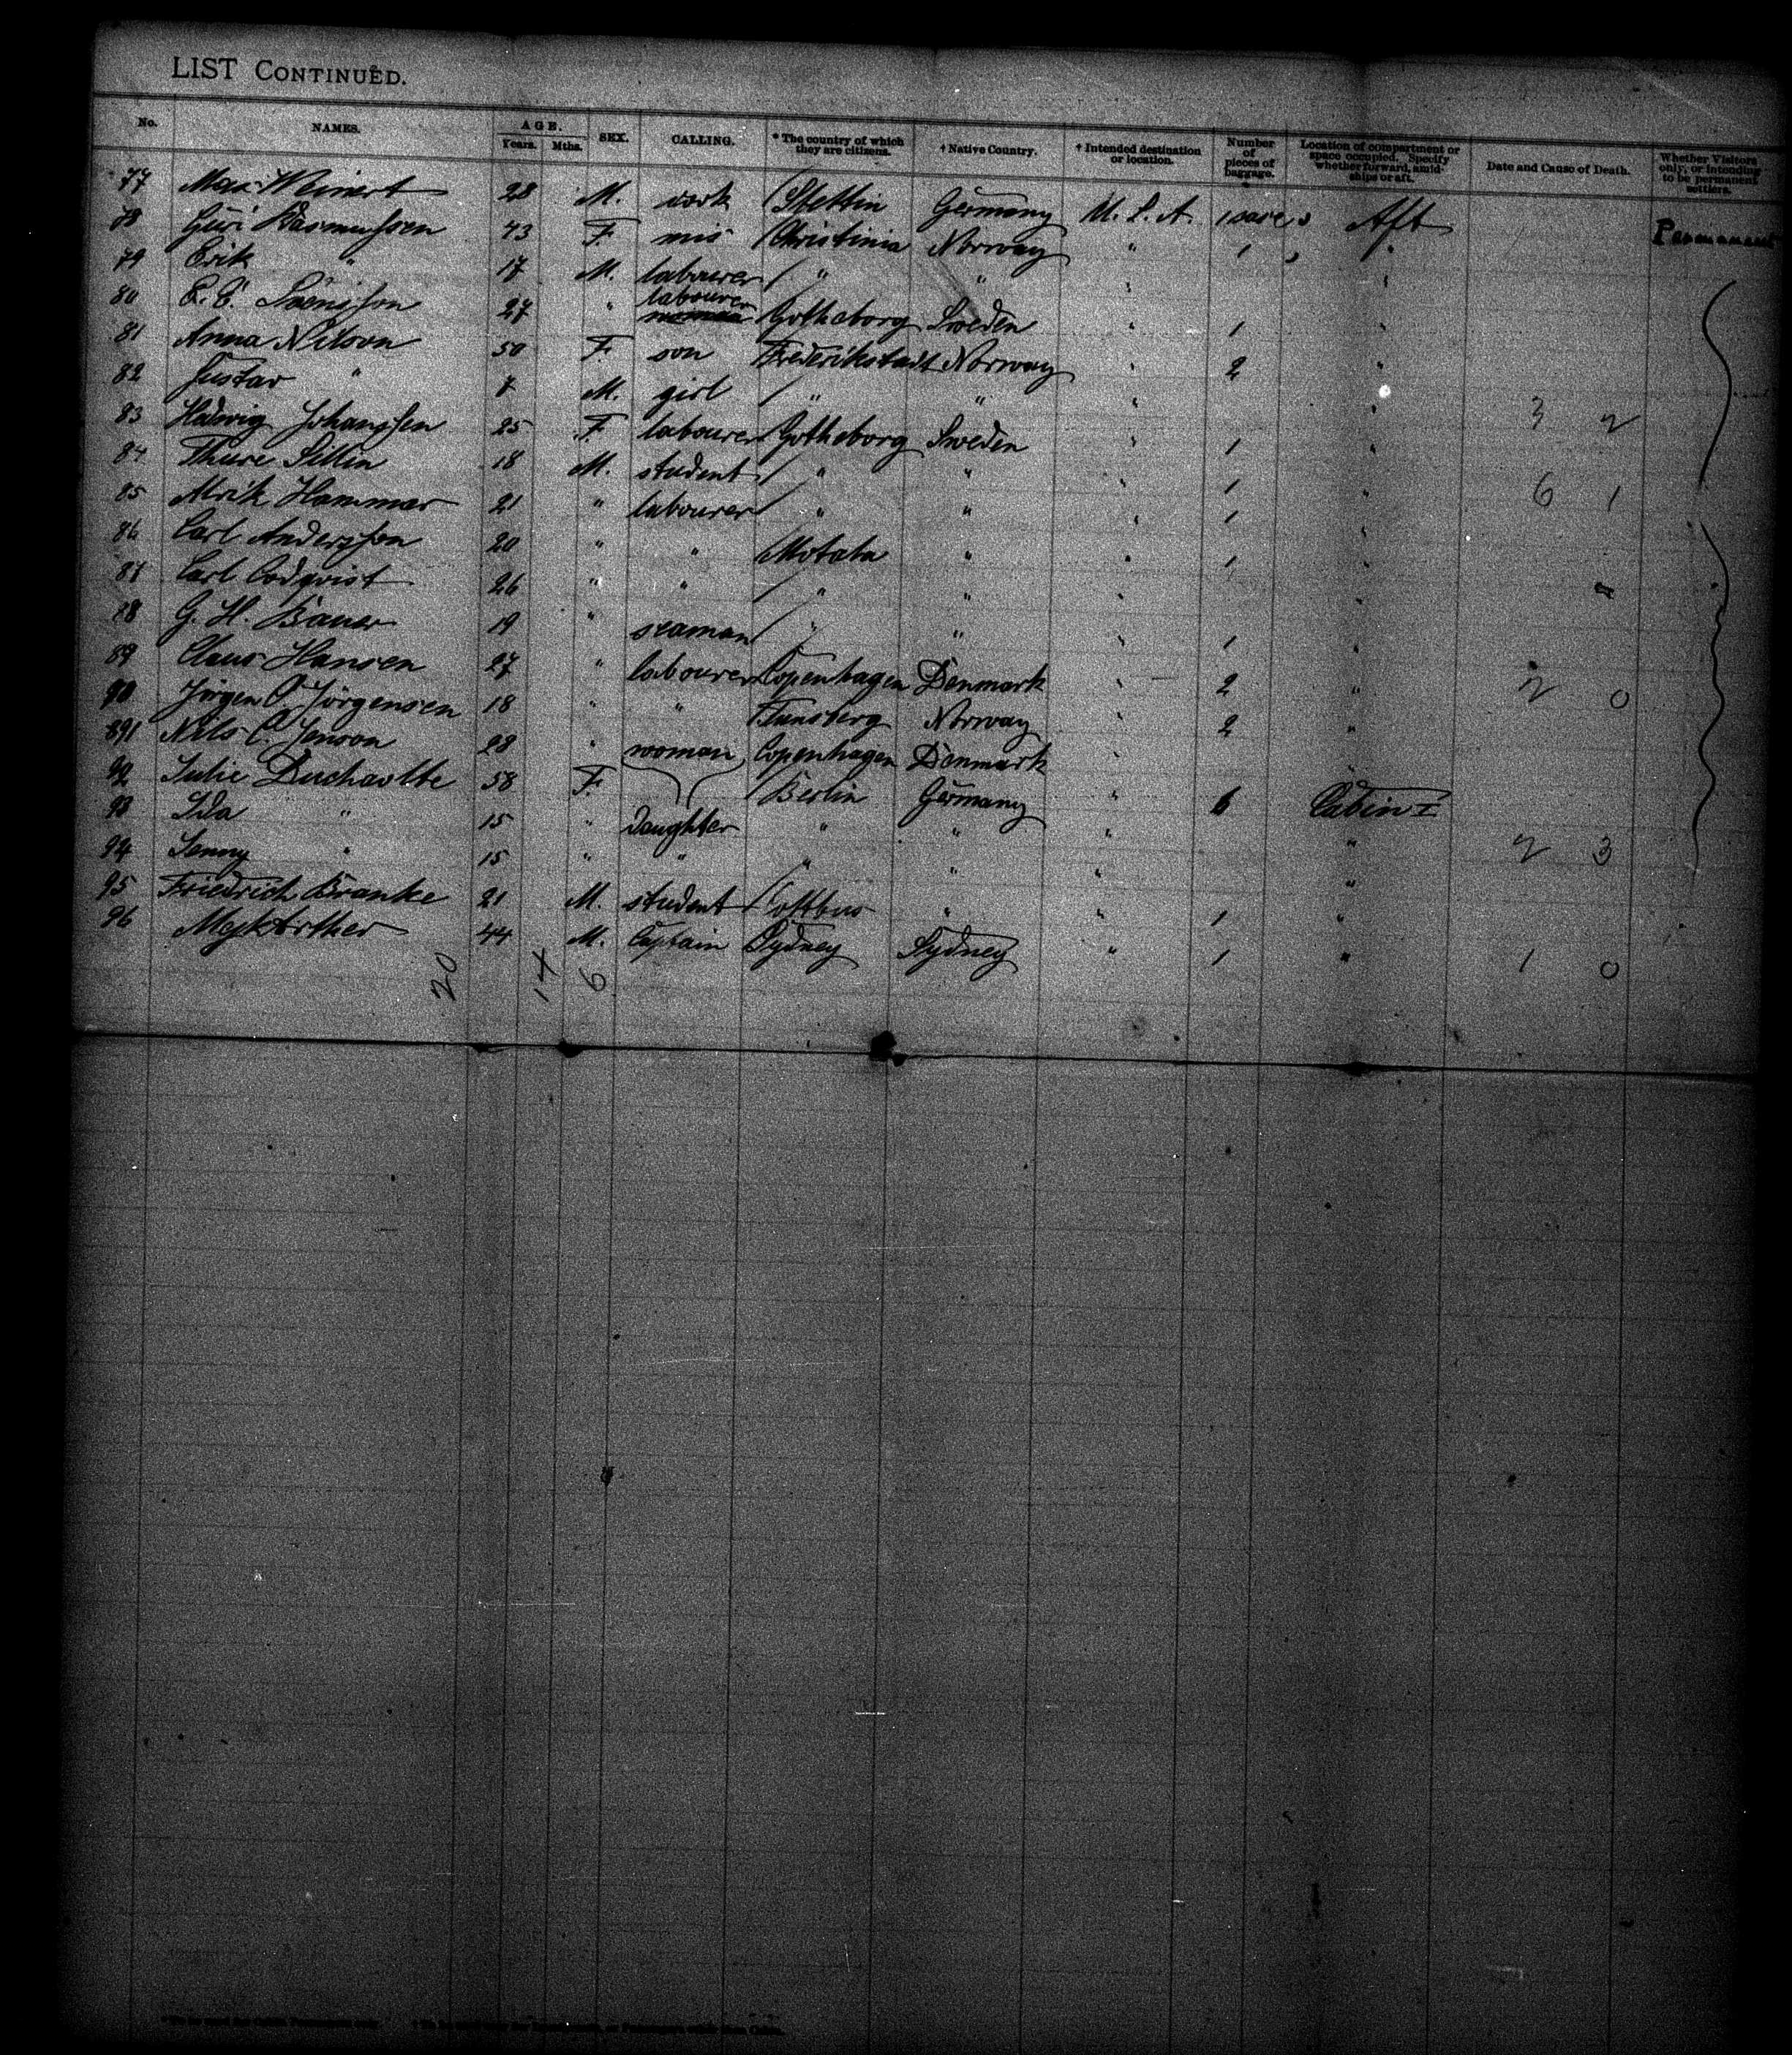 LIST CONTINUED.
No. NAMES. AGE. Years. Mths. SEX. CALLING. * The country of which they are citizens. † Native Country. † Intended destination or location. Number of pieces of baggage. Location of compartment or space occupied. Specify whether forward, amidships or aft. Date and Cause of Death. Whether Visitors only, or intending to be permanent settlers.
77 Max Weinert 28 M. Stettin Germany U. S. A. 1 Aft Permanent
78 Rasmussen 43 F. Christinia Norway " 1 "
79 Erik " 17 M. labourer " " " "
80 Svensson 27 " labourer Gotheborg Sweden " 1 "
81 Anna Nilson 50 F. son Frederikstadt Norway " 2 "
82 Gustav " 7 M. girl " " " " 3 2
83 Hedwig Johanssen 25 F. labourer Gotheborg Sweden " 1 "
84 Thure Sillin 18 M. student " " " 1 " 6 1
85 Hammar 21 " labourer " " " 1 "
86 Carl Andersson 20 " " Motala " " 1 "
87 Carl 26 " " " " " "
88 G. H. Bauer 19 " seaman " " " 1 "
89 Claus Hansen 27 " labourer Copenhagen Denmark " 2 " 2 0
90 Jörgen C. Jörgensen 18 " " Tunsberg Norway " 2 "
891 Nils C. Jenson 28 " woman Copenhagen Denmark " "
92 Julie 58 F. Berlin Germany " 6 Cabin I
93 Ida " 15 " daughter " " " " 2 3
94 Jenny " 15 " " " " " "
95 Friedrich Branke 21 M. student Cottbus " " 1 "
96 44 M. Captain Sydney Sydney " 1 " 1 0
20 14 6